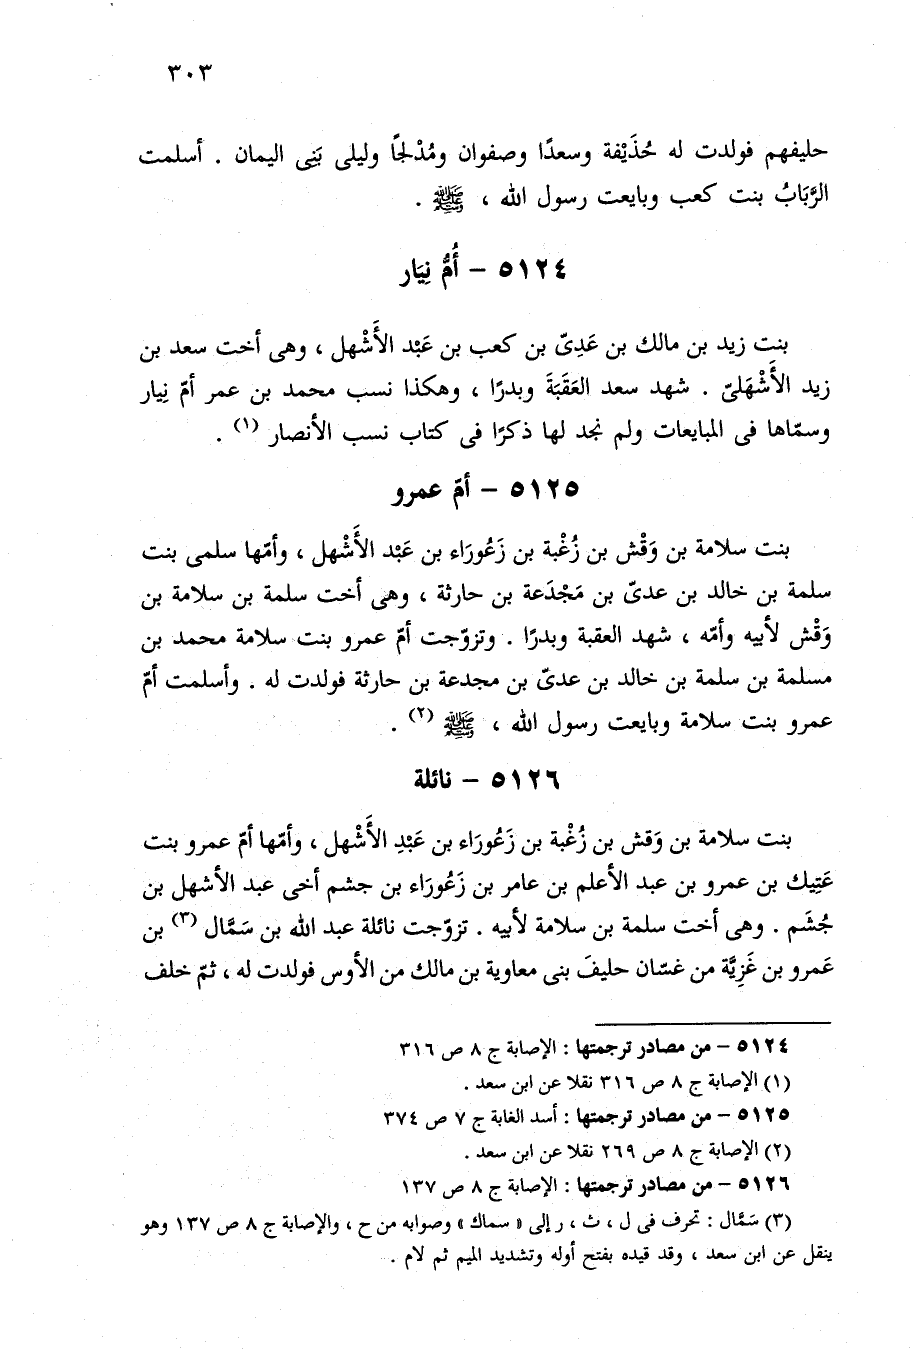 ٣٠٣
حليفهم فولدت له حُذَيْفة وسعدًا وصفوان ومُدْلجًا وليلى بَنِى اليمان . أسلمت
الرَّبَابُ بنت كعب وبايعت رسول الله ، ﷺ .
٥١٢٤ – أُمُّ نِيَار
بنت زيد بن مالك بن عَدِىّ بن كعب بن عَبْد الأَشْهل ، وهى أخت سعد بن
زيد الأَشْهَلىّ . شهد سعد العَقَبَةَ وبدرًا ، وهكذا نسب محمد بن عمر أمّ نِيار
وسمّاها فى المبايعات ولم نجد لها ذكرًا فى كتاب نسب الأنصار (١) .
٥١٢٥ – أمّ عمرو
بنت سلامة بن وَقْش بن زُغْبة بن زَعُورَاء بن عَبْد الأَشْهل ، وأمّها سلمى بنت
سلمة بن خالد بن عدىّ بن مَجْدَعة بن حارثة ، وهى أخت سلمة بن سلامة بن
وَقْش لأبيه وأمّه ، شهد العقبة وبدرًا . وتزوّجت أمّ عمرو بنت سلامة محمد بن
مسلمة بن سلمة بن خالد بن عدىّ بن مجدعة بن حارثة فولدت له . وأسلمت أمّ
عمرو بنت سلامة وبايعت رسول الله ، ﷺ (٢) .
٥١٢٦ – نائلة
بنت سلامة بن وَقش بن زُغْبة بن زَعُورَاء بن عَبْدِ الأَشْهل ، وأمّها أمّ عمرو بنت
عَتِيك بن عمرو بن عبد الأعلم بن عامر بن زَعُورَاء بن جشم أخى عبد الأشهل بن
جُشَم . وهى أخت سلمة بن سلامة لأبيه . تزوّجت نائلة عبد الله بن سَمَّال (٣) بن
عَمرو بن غَزِيَّة من غسّان حليفَ بنى معاوية بن مالك من الأوس فولدت له ، ثمّ خلف
٥١٢٤ – من مصادر ترجمتها : الإصابة ج ٨ ص ٣١٦
(١) الإصابة ج ٨ ص ٣١٦ نقلا عن ابن سعد .
٥١٢٥ – من مصادر ترجمتها : أسد الغابة ج ٧ ص ٣٧٤
(٢) الإصابة ج ٨ ص ٢٦٩ نقلا عن ابن سعد .
٥١٢٦ – من مصادر ترجمتها : الإصابة ج ٨ ص ١٣٧
(٣) سَمَّال : تحرف فى ل ، ث ، ر إلى « سماك » وصوابه من ح ، والإصابة ج ٨ ص ١٣٧ وهو
ينقل عن ابن سعد ، وقد قيده بفتح أوله وتشديد الميم ثم لام .